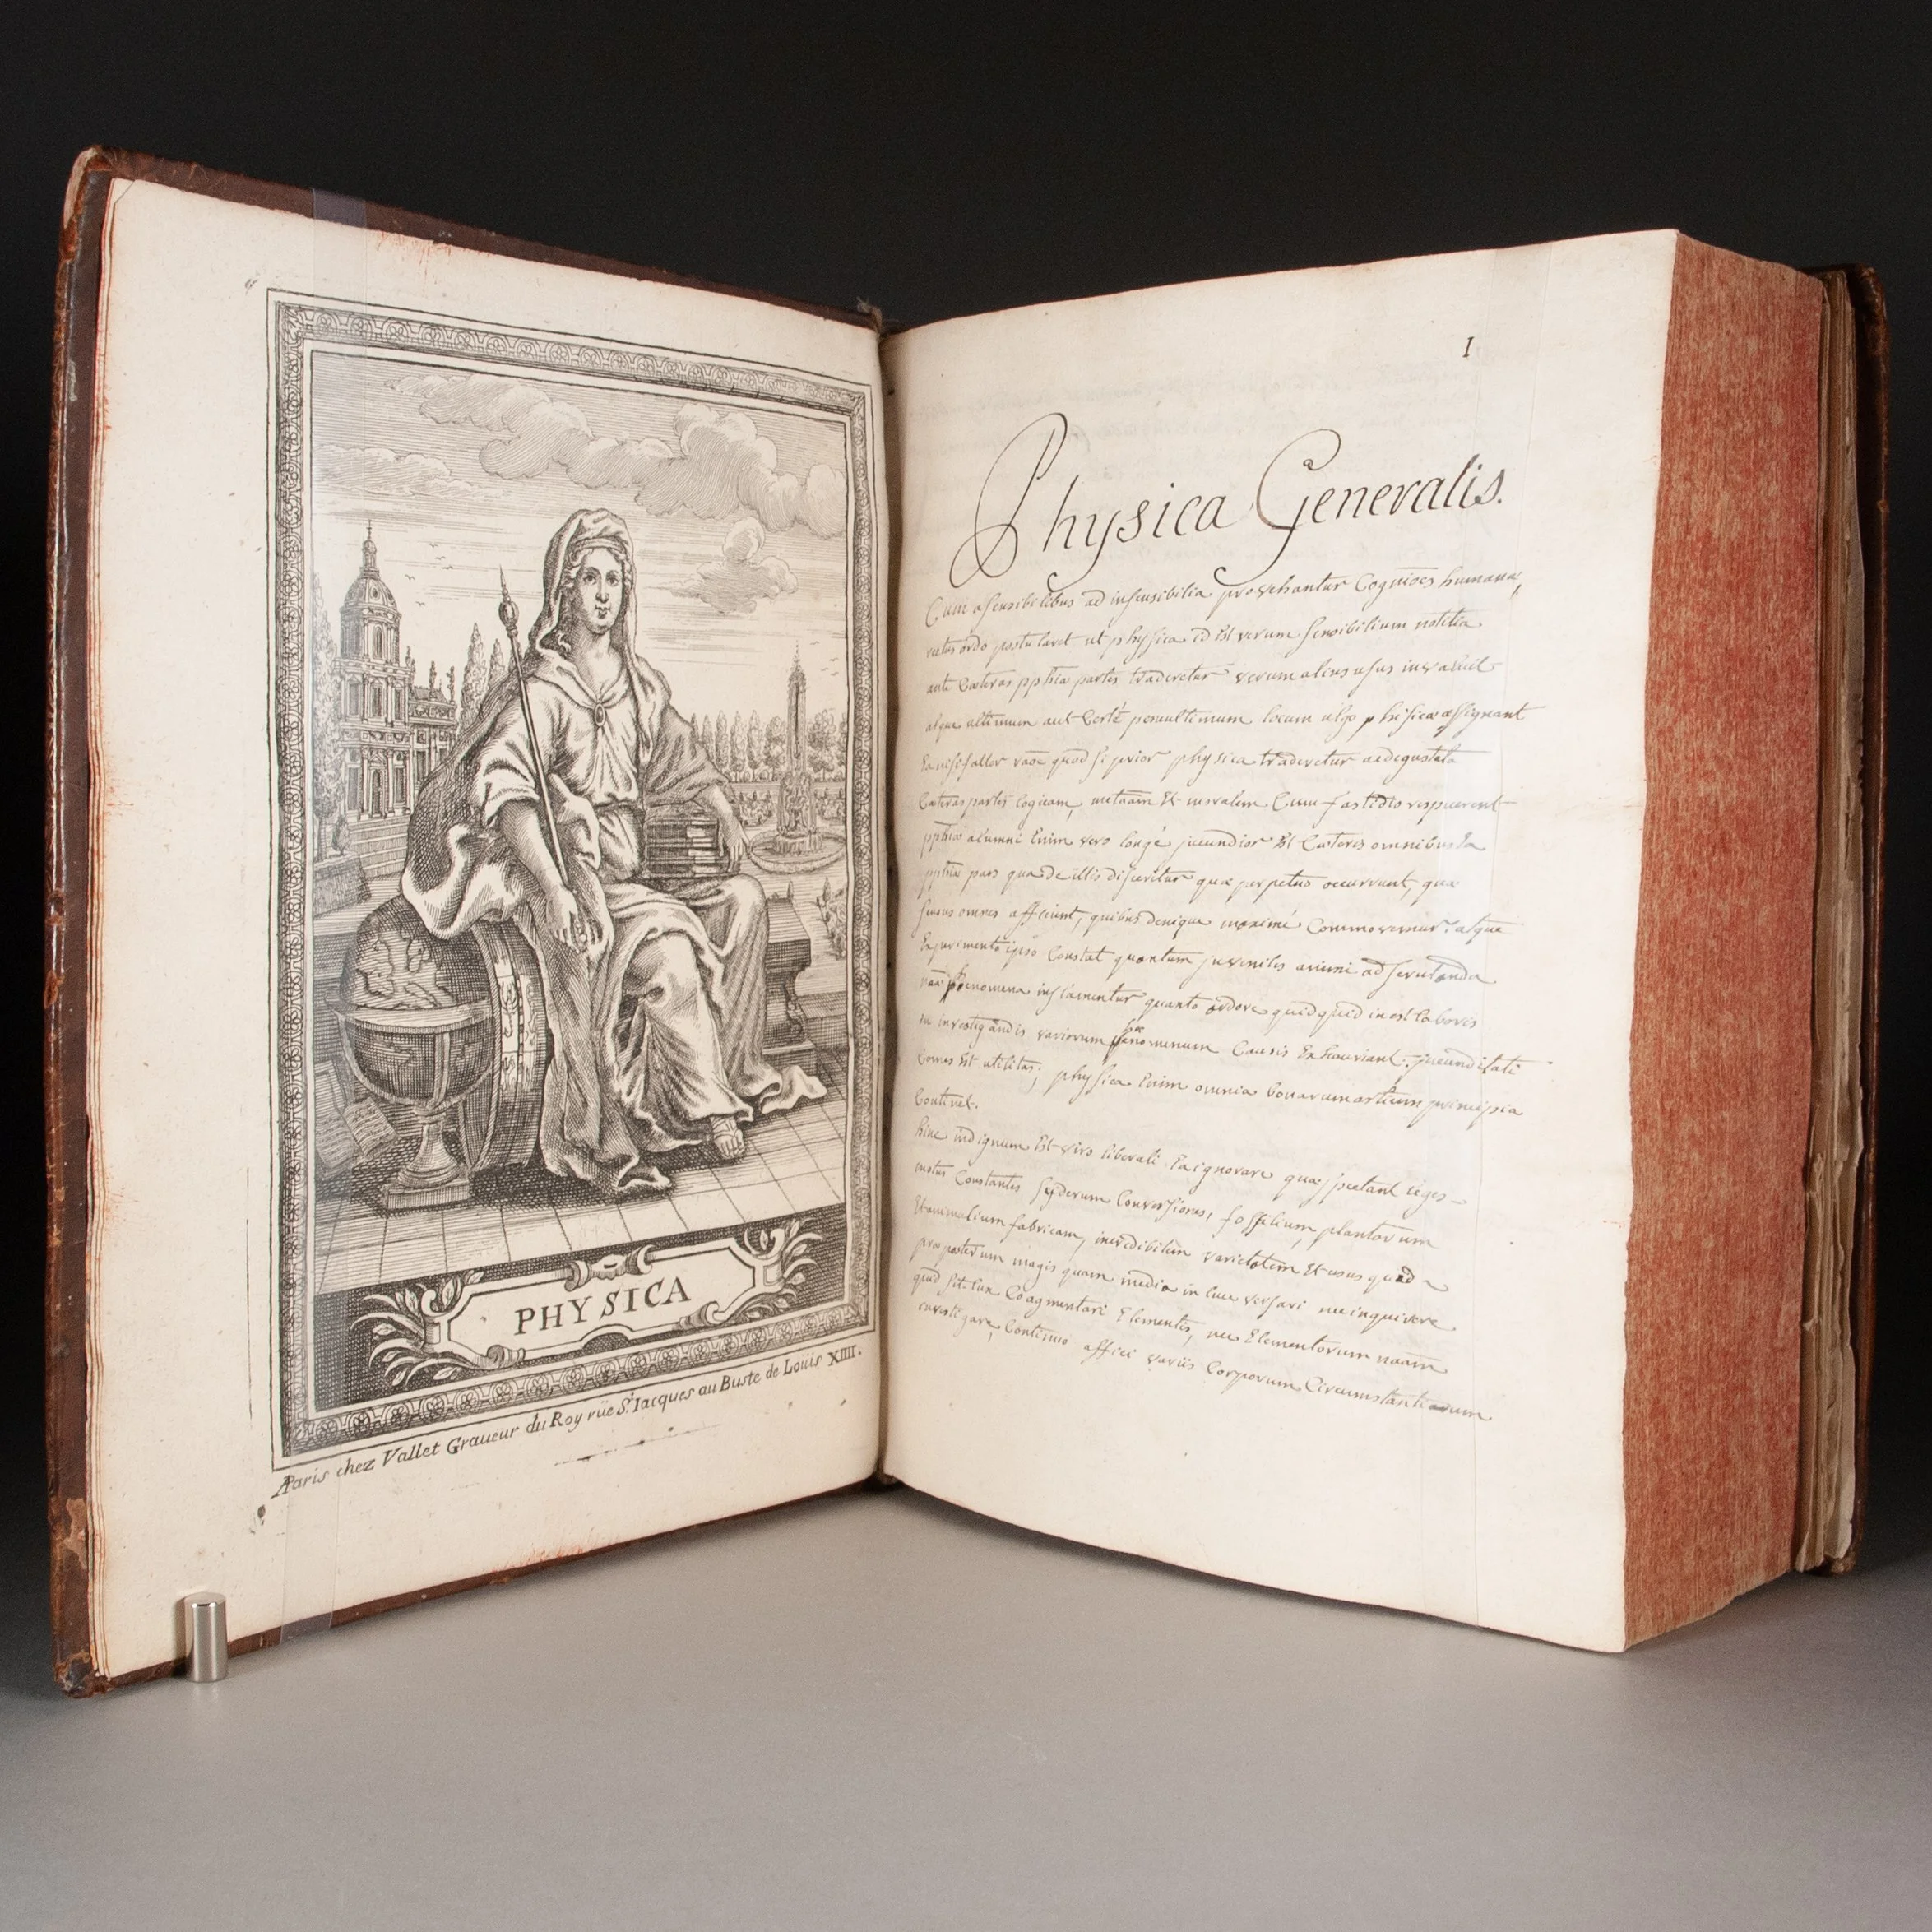 PHYSICA
A Paris chez Vallet Graueur du Roy rüe St. Iacques au Buste de Loüis XIIII.
1
Physica Generalis.
Cum a sensibilibus ad insensibilia provehantur Cognioes humanæ,
rectus ordo postularet ut physica id est rerum sensibilium notitia
ante Cæteras pphiæ partes traderetur verum alius usus invaluit
atque ultimum aut Certè penultimum locum physicæ assignant
quod si prior physica traderetur
Cæteras partes logicam, metaam Et moralem Cum fastidio respuerent
pphiæ alumni Enim vero longè jucundior Est Cæteris omnibus Ea
pphiæ pars qua de illis disseritur quæ perpetuo occurrunt, quæ
sensus omnes afficiunt, quibus denique maximè Commovemur atque
Experimento ipso Constat quantum juveniles animi ad scrutanda
phænomena inflamentur quanto ardore quidquid inest laboris
in investigandis variorum phænomenum Causis Exhauriant. jucunditati
Comes Est utilitas; physica Enim omnia bonarum artium principia
Continet.
hinc indignum Est viro liberali Ea ignorare quæ spectant leges
motus Constantes syderum Conversiones, fossilium, plantarum
Et animalium fabricam, incredibilem varietatem Et usus quid
præposterum magis quam media in luce versari nec inquirere
quid sit lux Coagmentari Elementis, nec Elementorum naam
investigare, Continuo affici variis Corporum Circumstantiarum